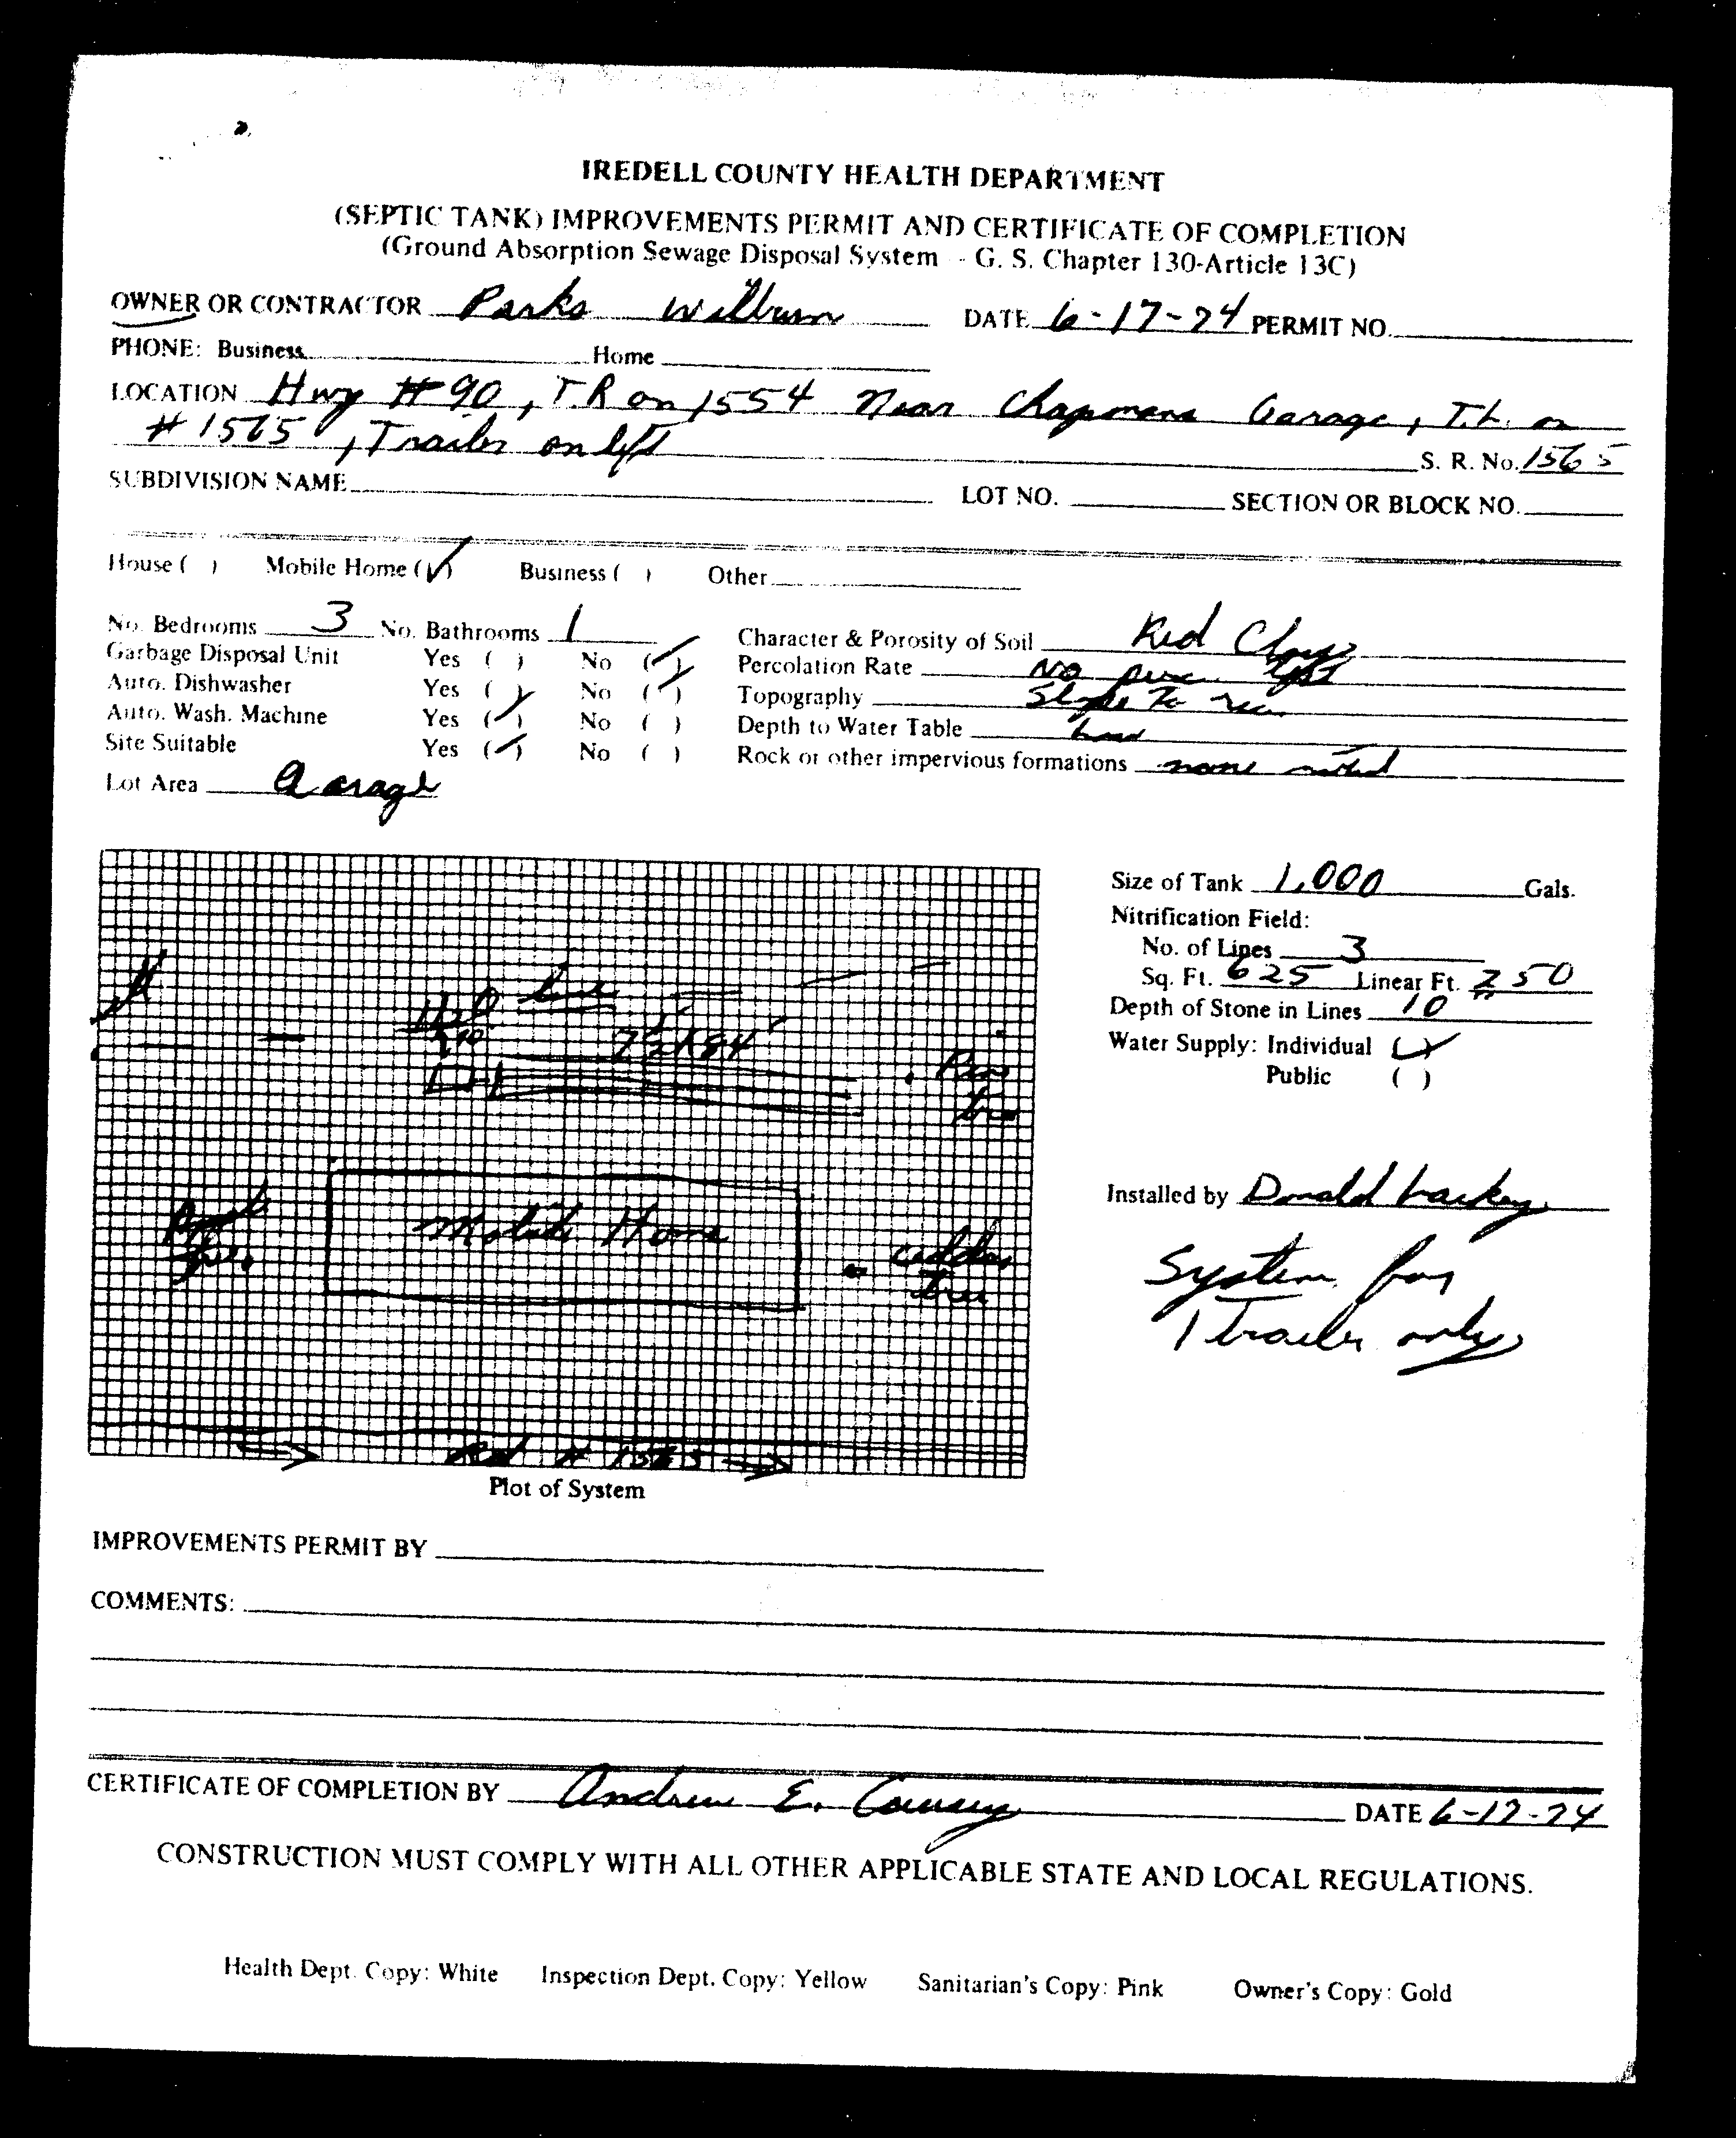 IREDELL COUNTY HEALTH DEPARTMENT
(SEPTIC TANK) IMPROVEMENTS PERMIT AND CERTIFICATE OF COMPLETION
(Ground Absorption Sewage Disposal System - G. S. Chapter 130-Article 13C)
OWNER OR CONTRACTOR Parks Wilburn DATE 6-17-74 PERMIT NO.
PHONE: Business Home
LOCATION Hwy #90, T.R on 1554 Near Chapmans Garage, T.L. on
#1565, Trailer on left S. R. No. 1565
SUBDIVISION NAME LOT NO. SECTION OR BLOCK NO.
House ( ) Mobile Home (✓) Business ( ) Other
No. Bedrooms 3 No. Bathrooms 1 Character & Porosity of Soil Red Clay
Garbage Disposal Unit Yes ( ) No (✓) Percolation Rate No perc. test
Auto. Dishwasher Yes ( ) No (✓) Topography Slope To rear
Auto. Wash. Machine Yes (✓) No ( ) Depth to Water Table
Site Suitable Yes (✓) No ( ) Rock or other impervious formations none noted
Lot Area Acerage
Size of Tank 1,000 Gals.
Nitrification Field:
No. of Lines 3
Sq. Ft. 625 Linear Ft. 250
Depth of Stone in Lines 10"
Water Supply: Individual (✓)
Public ( )
line
2½ x 84'
Pine
tree
Mobile Home
tree
cedder
tree
Rd # 1565
Plot of System
Installed by Donald Lackey
System for
1 trailer only
IMPROVEMENTS PERMIT BY
COMMENTS:
CERTIFICATE OF COMPLETION BY Andrew E. DATE 6-17-74
CONSTRUCTION MUST COMPLY WITH ALL OTHER APPLICABLE STATE AND LOCAL REGULATIONS.
Health Dept. Copy: White Inspection Dept. Copy: Yellow Sanitarian's Copy: Pink Owner's Copy: Gold